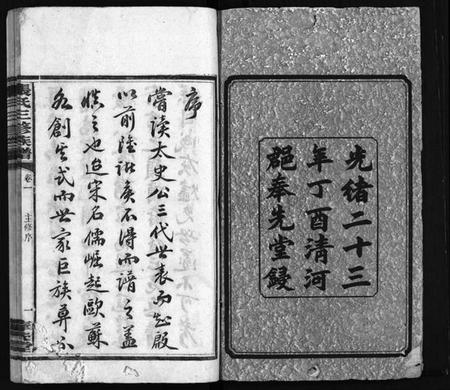 光緒二十三
年丁酉清河
郡奉先堂鋟
序
嘗讀太史公三代世表而知殷
以前隆污矣不得而譜之蓋
慎之也迨宋名儒崛起歐蘇
各創其式而世家巨族莫不
張氏三修族譜
卷一
主修序
一